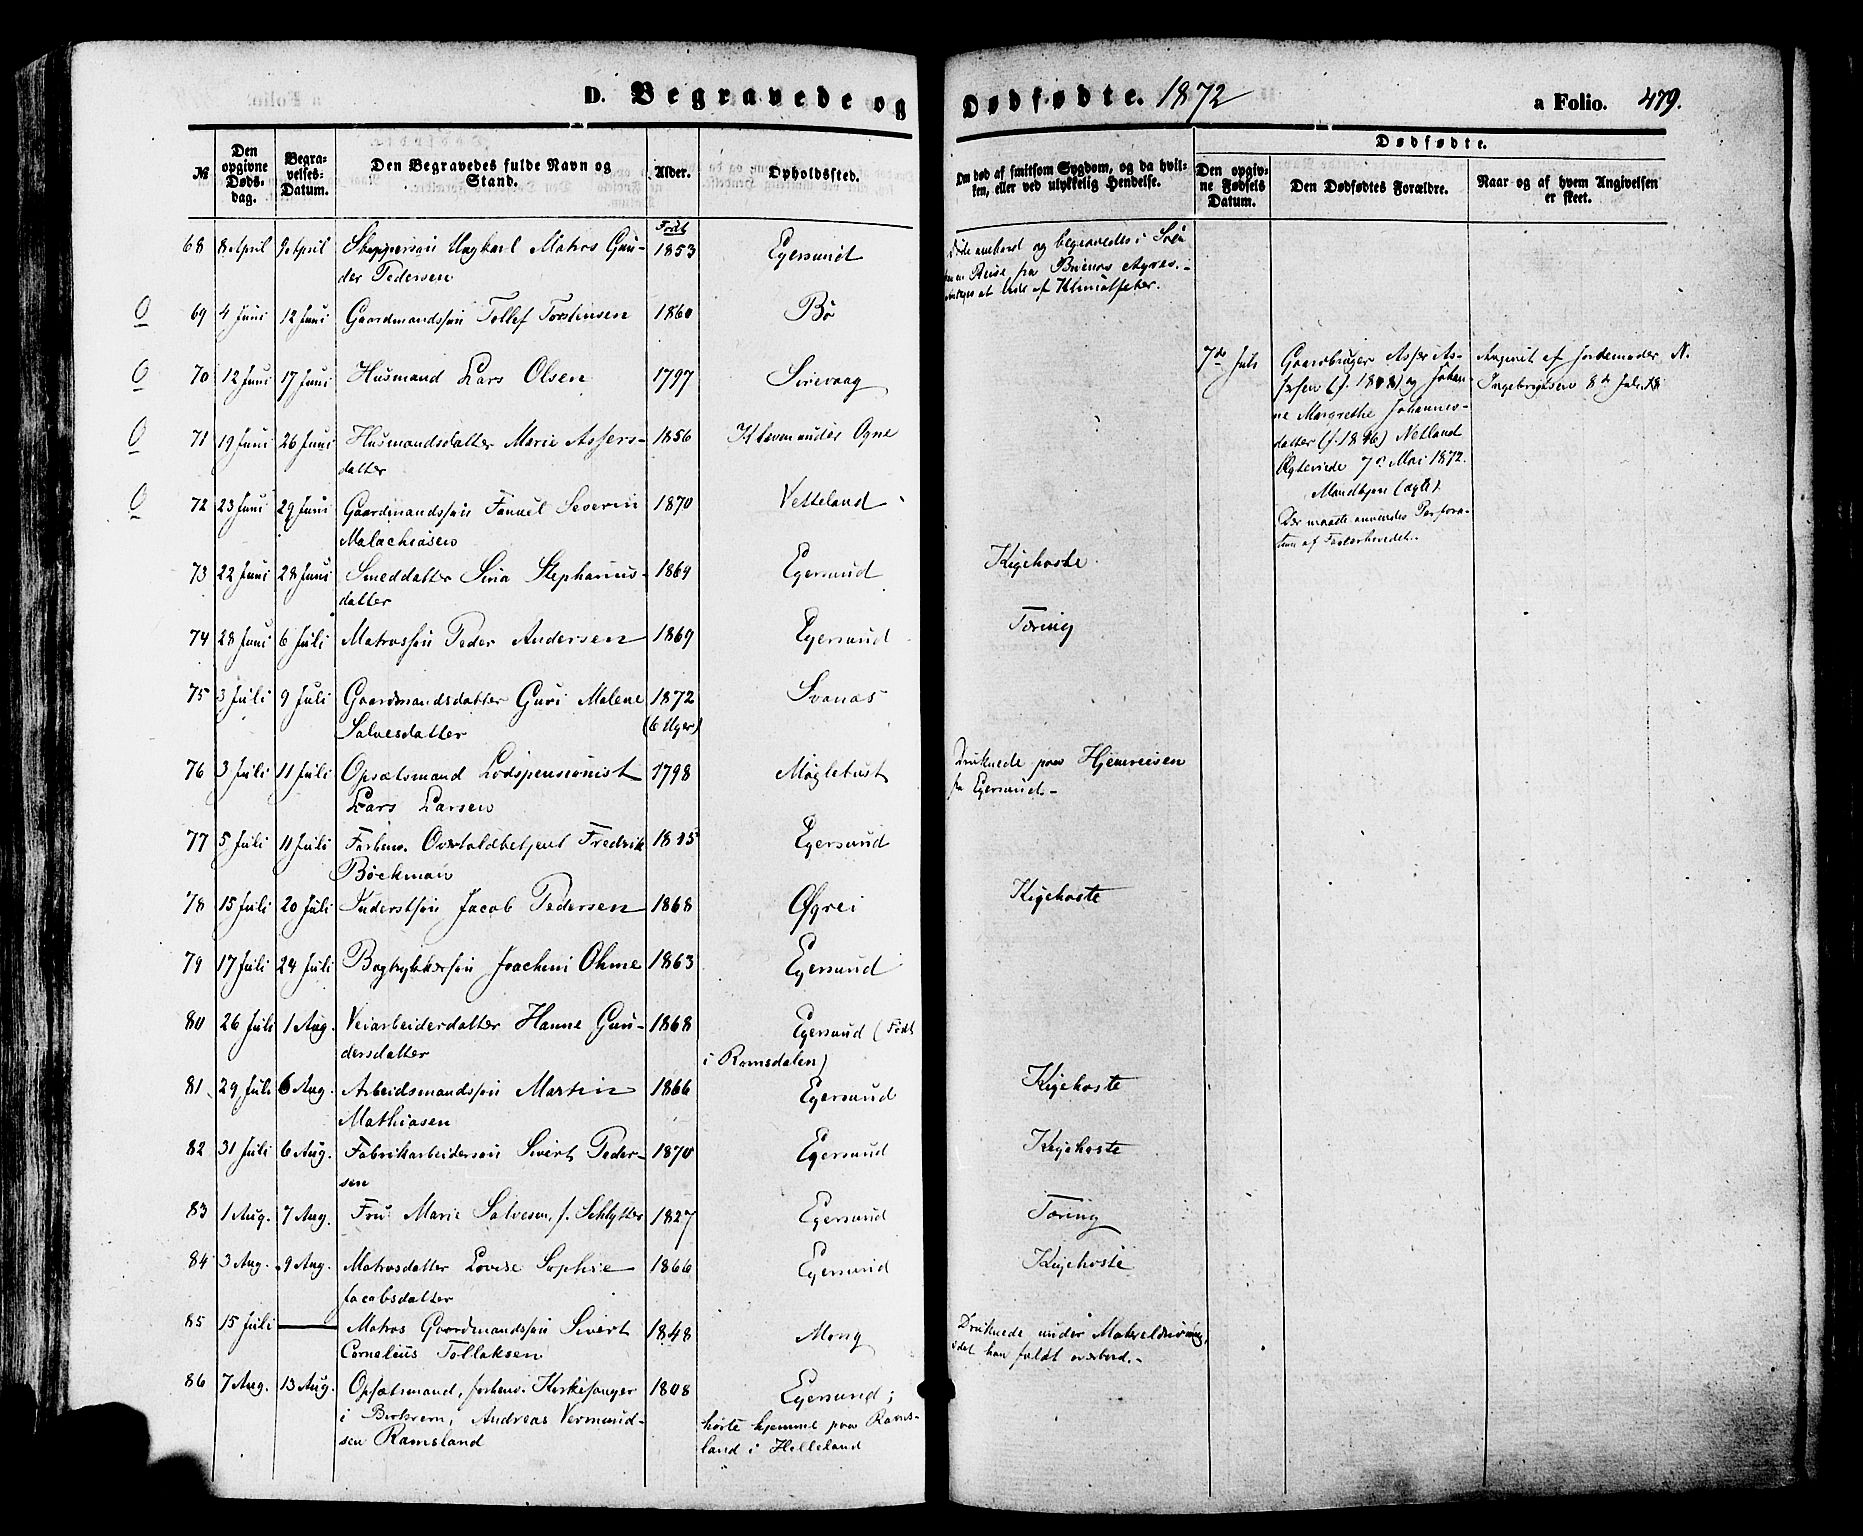 D. Begravede og Dødfødte. 1872 a Folio. 479.
№ Den opgivne Døds-dag. Begra-velses-Datum. Den Begravedes fulde Navn og Stand. Alder. Opholdssted. Om død af smitsom Sygdom, og da hvil-ken, eller ved ulykkelig Hendelse. Dødfødte. Den opgiv-ne Fødsels Datum. Den Dødfødtes Forældre. Naar og af hvem Angivelsen er skeet.
Født
68 8 April 9 April Ungkarl Matros Gun- 1853 Egersund
der Pedersen
Døde ombord og begravedes i Søen
Reise fra Buenos Ayres.
at lide af Klimatfeber.
O 69 4 Juni 12 Juni Gaardmandssøn Tollef Torstensen 1860 Bø
O 70 12 Juni 17 Juni Husmand Lars Olsen 1797 Sirevaag
O 71 19 Juni 26 Juni Husmandsdatter Marie Assers- 1856 Ogne
datter
O 72 23 Juni 29 Juni Gaardmandssøn Severin 1870 Vetteland
Malachiasen
73 22 Juni 28 Juni Smeddatter Sina Stephanus- 1869 Egersund Kighoste
datter
74 28 Juni 6 Juli Matrossøn Peder Andersen 1869 Egersund Tæring
75 3 Juli 9 Juli Gaardmandsdatter Guri Malene 1872 Svanæs
Salvesdatter (6 Uger)
76 3 Juli 11 Juli Opsætsmand Lodspensionist 1798 Møglebust Druknede paa Hjemreisen
Lars Larsen fra Egersund.-
77 5 Juli 11 Juli Forhenv. Overtoldbetjent Fredrik Egersund
Bøckman
78 15 Juli 20 Juli Inderstsøn Jacob Pedersen 1868 Øgrei Kighoste
79 17 Juli 24 Juli Bogtrykkersøn Joachim Ohme 1863 Egersund
80 26 Juli 1 Aug. Veiarbeiderdatter Hanne Gun- 1868 Egersund (Født
dersdatter i Romsdalen)
81 29 Juli 6 Aug. Arbeidsmandssøn Martin 1866 Egersund Kighoste
Mathiasen
82 31 Juli 6 Aug. Fabrikarbeidersøn Sivert Peder- 1870 Egersund Kighoste
sen
83 1 Aug. 7 Aug. Fru Marie Salvesen, f. Schlytter 1827 Egersund Tæring
84 3 Aug. 9 Aug. Matrosdatter Lovise Sophie 1866 Egersund Kighoste
Jacobsdatter
85 15 Juli — Matros Gaardmandssøn Sivert 1848 Mong Druknede under Makreldrivning,
Cornelius Tollaksen idet han faldt overbord.-
86 7 Aug. 13 Aug. Opsætsmand, forhenv. Kirkesanger 1808 Egersund;
i Birkrem, Andreas Vermund- hørte hjemme paa Rams-
sen Ramsland land i Helleland
7de Juli Gaardbruger Asser As-
sersen og Johan-
ne Margrethe Johannes-
datter (f. 1846) Netland
Ægteviede 7de Mai 1872.
Mandkjøn (ægte).
Der maatte anvendes Perfora-
tion af Fosterhovedet.
Angivet af Jordemoder N.
Ingebrigtsen 8de Juli